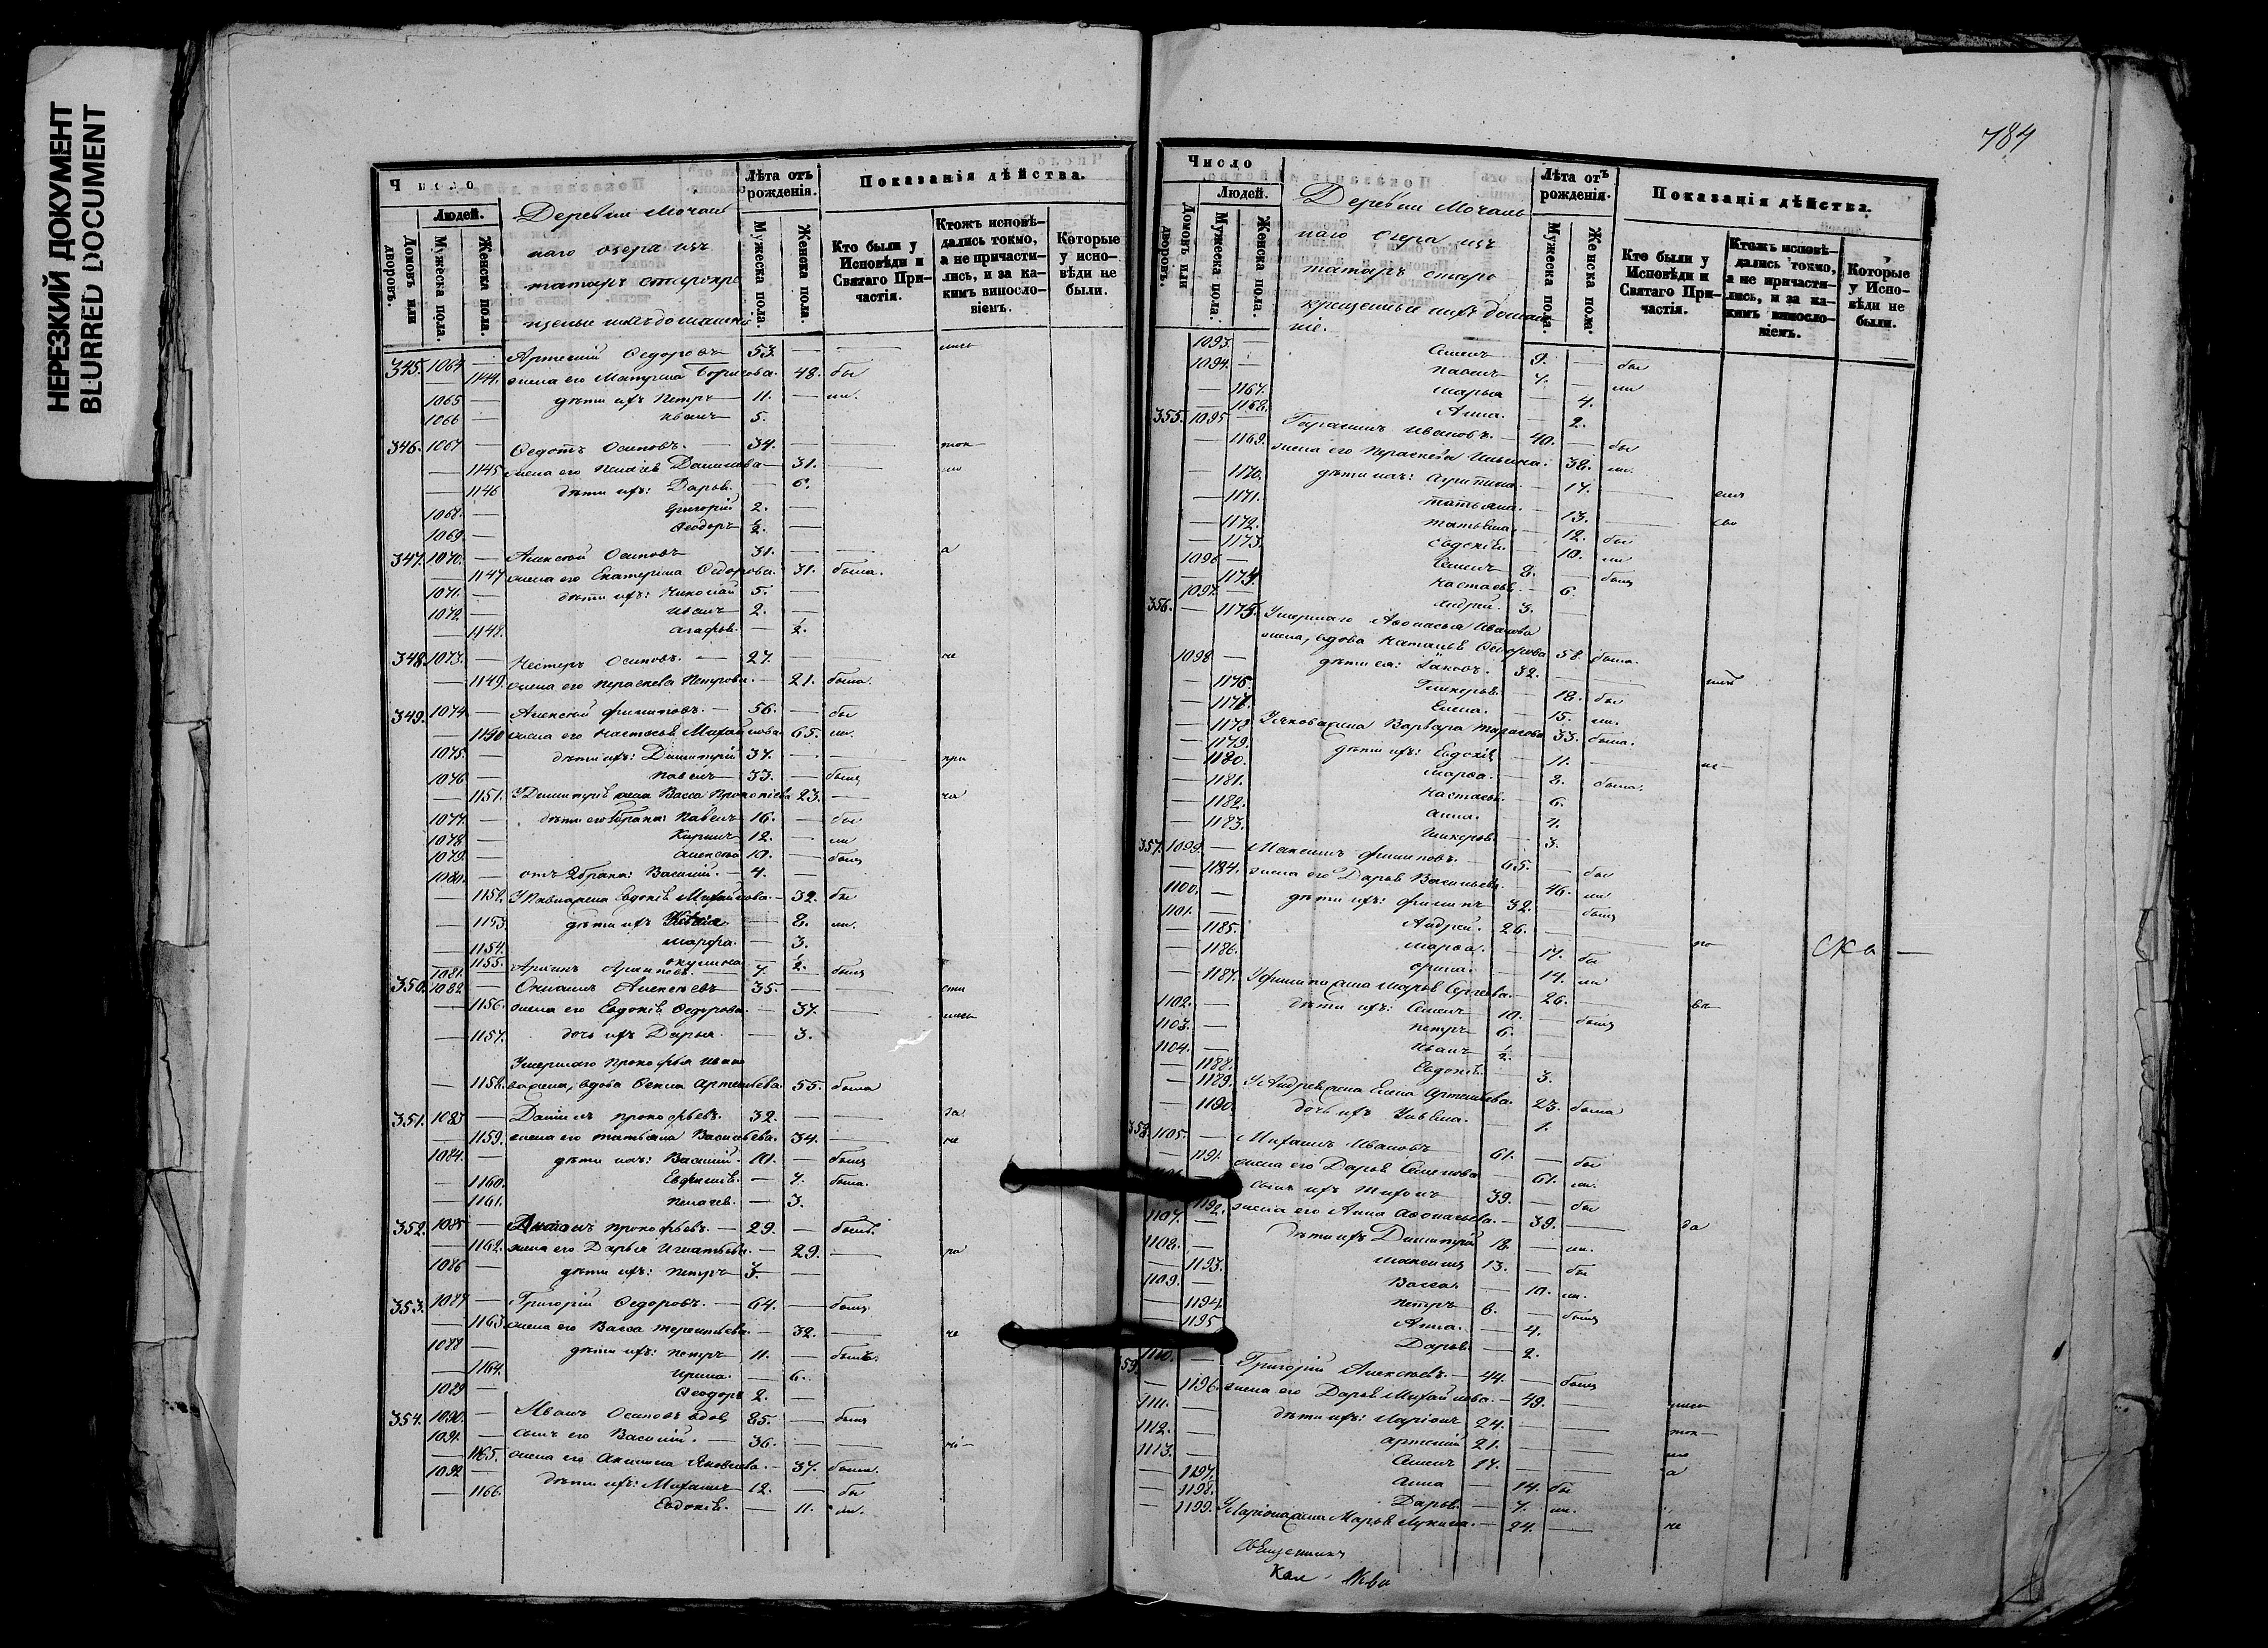 НЕРЕЗКИЙ ДОКУМЕНТ
BLURRED DOCUMENT
Число
Людей.
Домовъ или дворовъ.
Мужеска пола.
Женска пола.
Деревни Мочаль
наго озера изъ
татаръ старокре
щеные ихъ домашніе
Лѣта отъ рожденія.
Мужеска пола.
Женска пола.
Показанія дѣйства.
Кто были у Исповѣди и Святаго Причастія.
Ктожъ исповѣдались токмо, а не причастились, и за какимъ винословіемъ.
Которые у исповѣди не были.
345. 1064 — Артемій Ѳедоровъ 53. —
— 1144. жена его Матрена Борисова. 48. бы
1065 — дѣти ихъ Петръ 11. — ли.
1066 — Иванъ 5.
346. 1067 — Ѳедотъ Осиповъ. 34. — ток
— 1145. жена его Пелагея Данилова — 31. мо
— 1146 дѣти ихъ: Дарья. — 6.
1068. — Григорій 2. —
1069. — Ѳеодоръ ½. —
347. 1070. — Алексѣй Осиповъ 31. — а
— 1147 жена его Екатерина Ѳедорова. 31. была.
1071. — дѣти ихъ: Николай 5. —
1072. — Иванъ 2. —
— 1148. Агафья. — ½.
348. 1073. — Нестеръ Осиповъ. — 27. — не
— 1149. жена его Параскева Петрова. — 21. была.
349. 1074. — Алексѣй Филиповъ. — 56. — бы
— 1150 жена его Настасья Михайлова. 65. ли.
1075. — дѣти ихъ: Димитрій 37. — при
1076 — Павелъ 33. — былъ
— 1151. У Димитрія жена Васса Прокопіева 23. — ча
1077. — дѣти его 1 брака: Павелъ 16. — бы
1078. — Кирилъ 12. — ли
1079. — Алексѣй 10. — былъ
1080. — отъ 2 брака: Василій. — 4. —
— 1152. У Павла жена Евдокія Михайлова. — 32. бы
— 1153. дѣти ихъ — 8. ли.
— 1154. Марфа. — 3.
— 1155. Акулина — ½.
1081. — Архипъ Архиповъ. — 7. — былъ
350. 1082. — Алексѣевъ — 35. — сти
— 1156. жена его Евдокія Ѳедорова. — 37. лись
— 1157. дочь ихъ Дарья. — 3.
Умершаго Прокофья Ивано
— 1158. ва жена, вдова Артемьева. 55. была
351. 1083 — Данилъ Прокофьевъ. 32. — за
— 1159. жена его Татьяна Васильева. 34. — не
1084. — дѣти ихъ: Василій. 10. — былъ
— 1160. Евфимія. — 7. была.
— 1161. Пелагея. — 3.
352. 1085 — Прокофьевъ. — 29. — былъ.
— 1162. жена его Дарья Игнатьева. — 29. — ра
1086 — дѣти ихъ: Петръ 3. —
353. 1087 — Григорій Ѳедоровъ. — 64. — былъ.
— 1163 жена его Васса Терентьева. — 32. — че
1088 — дѣти ихъ: Петръ 11. — былъ.
— 1164. Ирина. — 6.
1089 — Ѳеодоръ 2. —
354. 1090. — Иванъ Осиповъ вдов 85. — былъ
1091. — сынъ его Василій. — 36. —
— 1165. жена его Акилина Яковлева. — 37. была.
1092 — дѣти ихъ: Михаилъ 12. — бы
— 1166. Евдокія. — 11. ли.
784
Число
Людей.
Домовъ или дворовъ.
Мужеска пола.
Женска пола.
Деревни Мочаль
наго озера изъ
татаръ старо
крещеные ихъ домаш
ніе.
Лѣта отъ рожденія.
Мужеска пола.
Женска пола.
Показанія дѣйства.
Кто были у Исповѣди и Святаго Причастія.
Ктожъ исповѣдались токмо, а не причастились, и за какимъ винословіемъ.
Которые у Исповѣди не были.
1093. — Семенъ 9. — бы
1094. — Павелъ 7. — ли
— 1167. Марья — 4.
— 1168. Анна. — 2.
355. 1095 — Ивановъ. — 40. — бы
— 1169. жена его Параскева Ильина. 38. ли.
— 1170. дѣти ихъ: — 17.
— 1171. Татьяна. — 13.
— 1172. Татьяна. — 12. бы
— 1173. Евдокія. — 10. ли
1096 — Семенъ 8. — былъ
— 1174. Настасья. — 6.
1097. — Андрей. 3. —
356. — 1175. Умершаго Афонасья Иванова
жена, вдова Наталья Ѳедорова 58. была.
1098 — дѣти ея: Яковъ. 32. —
— 1176. Гликерья. — 18. бы
— 1177. Елена. — 15. ли.
— 1178 У Якова жена Варвара Тарасова 33. была.
— 1179. дѣти ихъ: Евдокія — 11. —
— 1180. Марфа. — 8. была.
— 1181. Настасья. — 6.
— 1182. Анна. — 4.
— 1183. Гликерья. — 3.
357. 1099. — Максимъ Филиповъ. — 65. — бы
— 1184. жена его Дарья Васильева. — 46. ли
1100. — дѣти ихъ: Филипъ 32. — былъ
1101. — Андрей. 26. — по
— 1185. Марфа. — 17. бы
— 1186. Орина. — 14. ли
— 1187. У Филипа жена Марья Сергеева. — 26. —
1102. — дѣти ихъ: Семенъ 10. — былъ
1103. — Петръ 6. —
1104. — Иванъ ½. —
— 1188. Евдокія. — 3.
— 1189. У Андрея жена Елена Артемьева. 23. была
— 1190. дочь ихъ Ульяна. — 1.
358. 1105. — Михаилъ Ивановъ 61. — бы
— 1191. жена его Дарья Семенова — 61. ли.
сынъ ихъ Тихонъ 39. — бы
1192. жена его Анна Афонасьева. — 39. — за
1107. — дѣти ихъ Димитрій 18. — ли.
1108. — Максимъ 13. — бы
— 1193. Васса. — 10. ли.
1109. — Петръ 6. — былъ
— 1194. Анна. — 4.
— 1195 Дарья. — 2.
359. 1110. — Григорій Алексѣевъ. — 44. — былъ
— 1196. жена его Дарья Михайлова. — 49. — лись
1111. — дѣти ихъ: Ларіонъ 24. — ток
1112. — Артемій 21. — мо
1113. — Семенъ 17. — а
— 1197. Анна — 14. бы
— 1198. Дарья. — 7. ли.
— 1199. У Ларіона жена Марья Лукина. — 24. — не
Священникъ